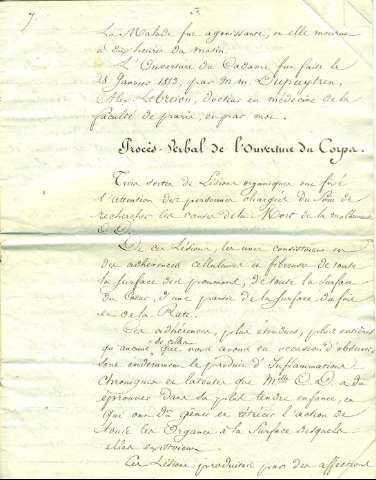 7
La Malade fut agonissante, et elle mourut
à dix heures du matin.
L'Ouverture du Cadavre fut faite le
28 Janvier 1813, par M.M. Dupuytren,
Lebreton, docteur en médecine de la
faculté de paris, et par moi.
Procès-Verbal de l'Ouverture du Corps.
Trois sortes de Lésions organiques ont fixé
l'attention des personnes chargées du soin de
rechercher les causes de la Mort de la malheureuse
De ces Lésions, les unes consistaient en
des adhérences celluleuses et fibreuses de toute
la Surface des poumons, de toute la Surface
du Coeur, d'une partie de la Surface du foie
et de la Rate.
Ces adhérences, plus étendues, plus entières
qu'aucune de celles que nous avons eu occasion d'observer,
sont évidemment le produit d'Inflammations
Chroniques et latentes que Melle O. D. a dû
éprouver dans sa plus tendre enfance, et
qui ont dû gêner et rétrécir l'action de
tous les Organes à la Surface desquels
elles existaient.
Ces Lésions produites par des affections